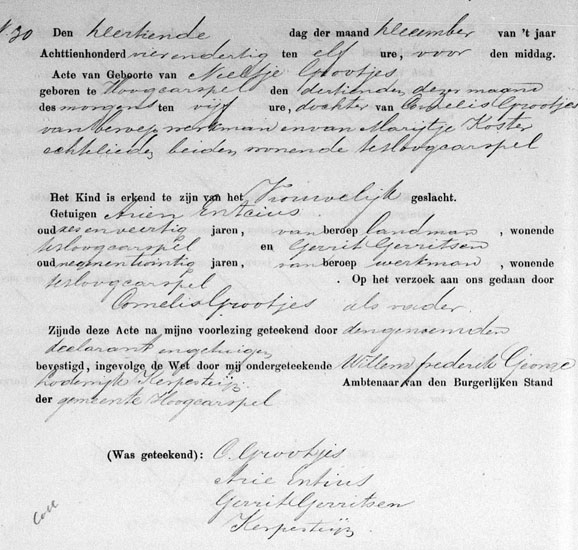 N. 30 Den veertiende dag der maand december van 't jaar
Achttienhonderd vier en dertig ten elf ure, voor den middag.
Acte van Geboorte van Neeltje Grootjes
geboren te Hoogcarspel den dertienden dezer maand
des morgens ten vijf ure, dochter van Cornelis Grootjes
van beroep werkman en van Marijtje Koster
echtlieden, beiden wonende te Hoogcarspel
Het Kind is erkend te zijn van het Vrouwelijk geslacht.
Getuigen Arien Entcius
oud zes en veertig jaren, van beroep landman, wonende
te Hoogcarspel en Gerrit Gerritsen
oud negenentwintig jaren, van beroep werkman, wonende
te Hoogcarspel. Op het verzoek aan ons gedaan door
Cornelis Grootjes als vader.
Zijnde deze Acte na mijne voorlezing geteekend door den genoemden
declarant en getuigen
bevestigd, ingevolge de Wet door mij ondergeteekende Willem frederik George
Lodewijk Kerpesteijn Ambtenaar van den Burgerlijken Stand
der gemeente Hoogcarspel
(Was geteekend): C. Grootjes
Arie Entius
Gerrit Gerritsen
Kerpesteijn
Coll